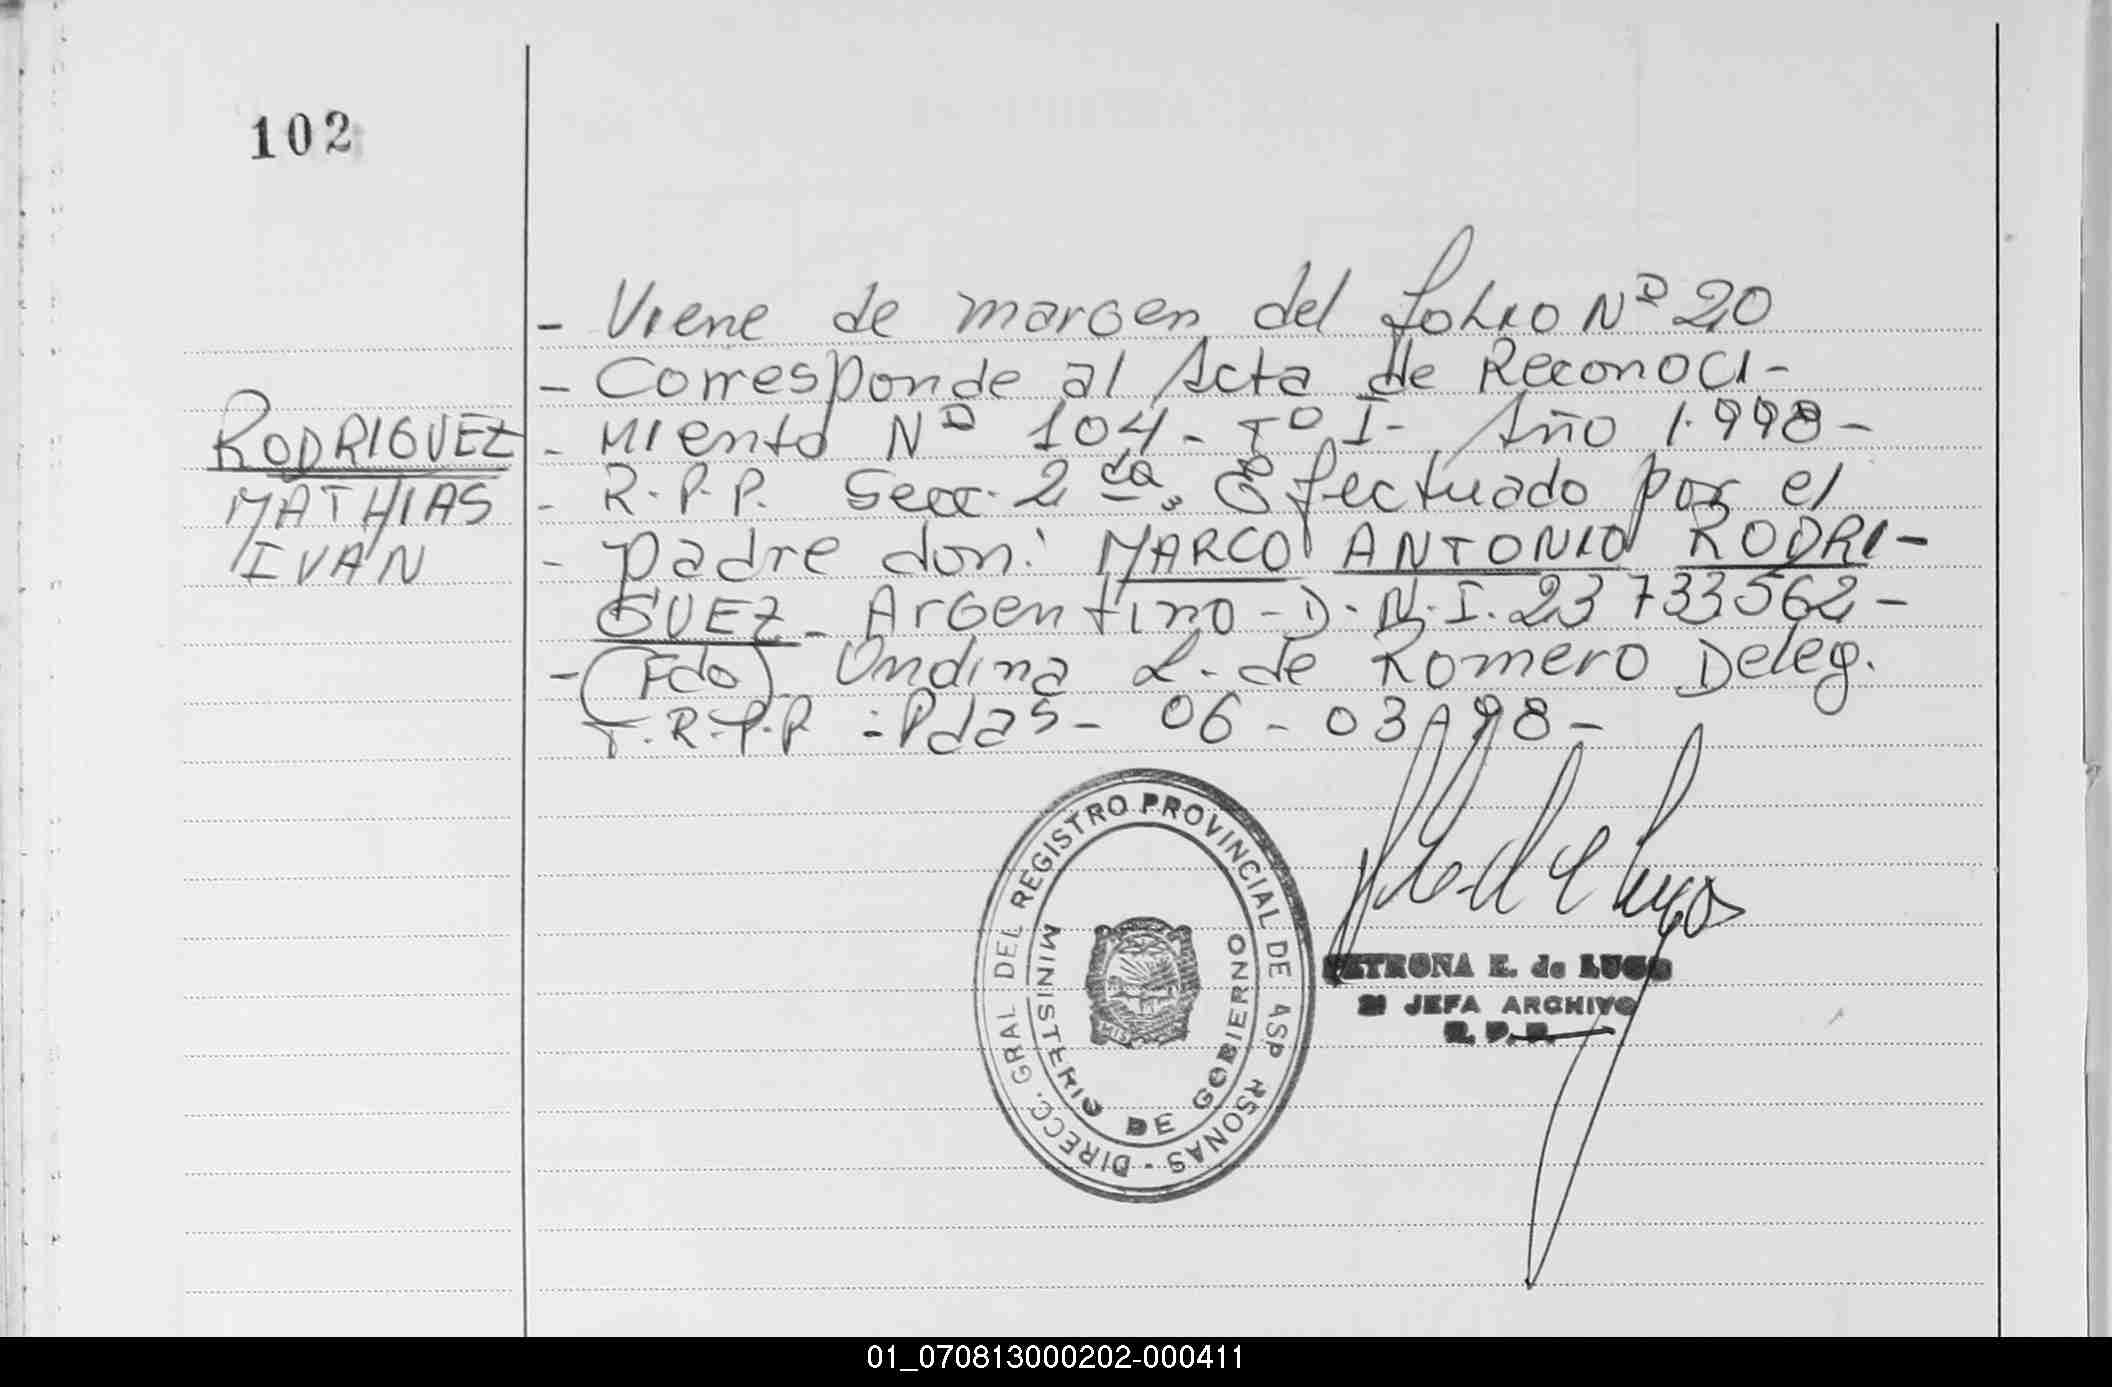 102
- Viene de margen del folio Nº 20
- Corresponde al Acta de Reconoci-
RODRIGUEZ
MATHIAS
IVAN
- miento Nº 104 - Tº I - Año 1.998 -
- R.P.P. Secc. 2da, Efectuado por el
- padre don: MARCO ANTONIO RODRI-
GUEZ - Argentino - D.N.I. 23733562 -
- (Fdo) Ondina L. de Romero Deleg.
T.R.P.P - Pdas - 06 - 03 - 98 -
DIRECC. GRAL DEL REGISTRO PROVINCIAL DE
RSONAS
MINISTERIO DE GOBIERNO
PETRONA E. de LUGO
JEFA ARCHIVO
R. P. P.
01_070813000202-000411